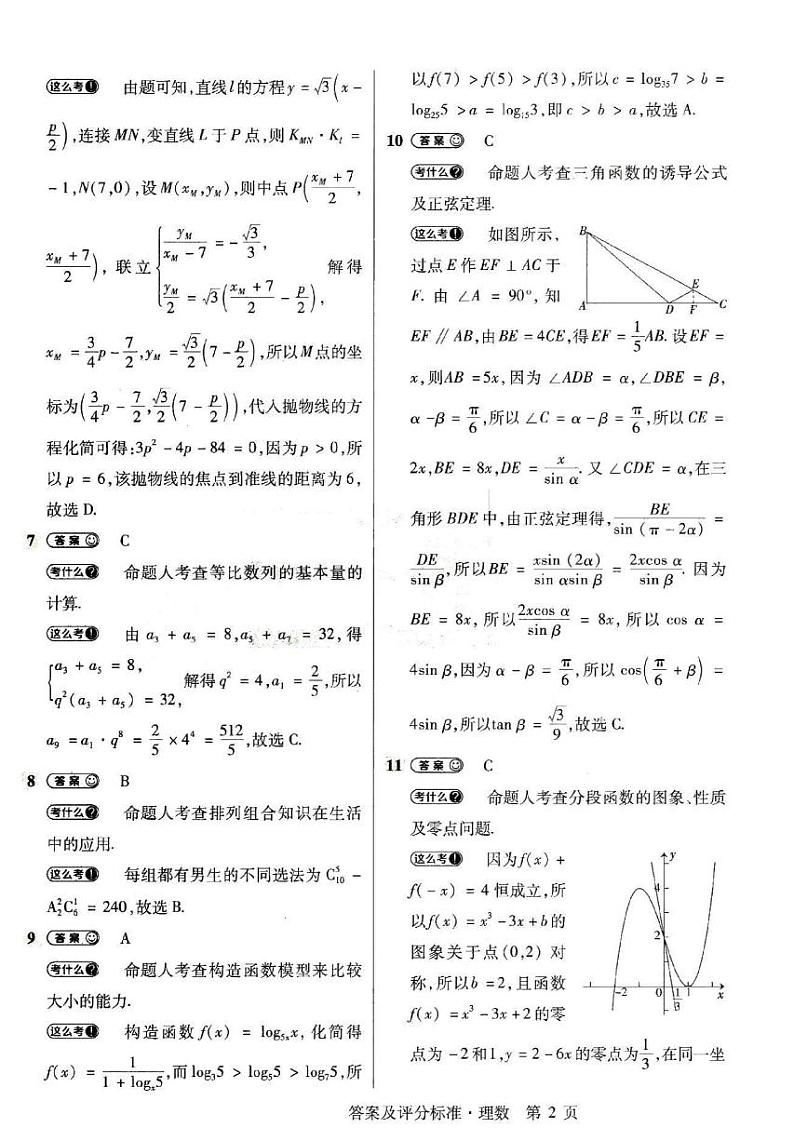 这么考 由题可知,直线l的方程y = √3(x -
p/2),连接MN,变直线L于P点,则K_MN · K_l =
- 1,N(7,0),设M(x_M,y_M),则中点P((x_M + 7)/2,
(x_M + 7)/2), 联立 { y_M/(x_M - 7) = - √3/3, y_M/2 = √3((x_M + 7)/2 - p/2), 解得
x_M = 3/4 p - 7/2,y_M = √3/2(7 - p/2),所以M点的坐
标为(3/4 p - 7/2,√3/2(7 - p/2)),代入抛物线的方
程化简可得:3p² - 4p - 84 = 0,因为p > 0,所
以p = 6,该抛物线的焦点到准线的距离为6,
故选D.
7 答案 C
考什么 命题人考查等比数列的基本量的
计算.
这么考 由a₃ + a₅ = 8,a₅ + a₇ = 32,得
{ a₃ + a₅ = 8, q²(a₃ + a₅) = 32, 解得q² = 4,a₁ = 2/5,所以
a₉ = a₁ · q⁸ = 2/5 × 4⁴ = 512/5,故选C.
8 答案 B
考什么 命题人考查排列组合知识在生活
中的应用.
这么考 每组都有男生的不同选法为C₁₀⁵ -
A₂²C₆¹ = 240,故选B.
9 答案 A
考什么 命题人考查构造函数模型来比较
大小的能力.
这么考 构造函数f(x) = log₅ₓx, 化简得
f(x) = 1/(1 + logₓ5),而log₃5 > log₅5 > log₇5,所
以f(7) > f(5) > f(3),所以c = log₃₅7 > b =
log₂₅5 > a = log₁₅3,即c > b > a,故选A.
10 答案 C
考什么 命题人考查三角函数的诱导公式
及正弦定理.
这么考 如图所示,
过点E作EF ⊥ AC于
F. 由 ∠A = 90°, 知
B
E
A D F C
EF ∥ AB,由BE = 4CE,得EF = 1/5 AB. 设EF =
x,则AB = 5x, 因为 ∠ADB = α,∠DBE = β,
α - β = π/6,所以 ∠C = α - β = π/6,所以CE =
2x,BE = 8x,DE = x/sin α. 又 ∠CDE = α,在三
角形BDE中,由正弦定理得, BE/sin (π - 2α) =
DE/sin β,所以BE = xsin (2α)/sin αsin β = 2xcos α/sin β. 因为
BE = 8x, 所以 2xcos α/sin β = 8x, 所以 cos α =
4sin β,因为α - β = π/6,所以cos(π/6 + β) =
4sin β,所以tan β = √3/9,故选C.
11 答案 C
考什么 命题人考查分段函数的图象、性质
及零点问题.
这么考 因为f(x) +
f( - x) = 4恒成立,所
以f(x) = x³ - 3x + b的
图象关于点(0,2) 对
称,所以b = 2,且函数
f(x) = x³ - 3x + 2的零
y
4
2
-2 0 1/3 1 x
点为 - 2和1,y = 2 - 6x的零点为1/3,在同一坐
答案及评分标准·理数 第 2 页